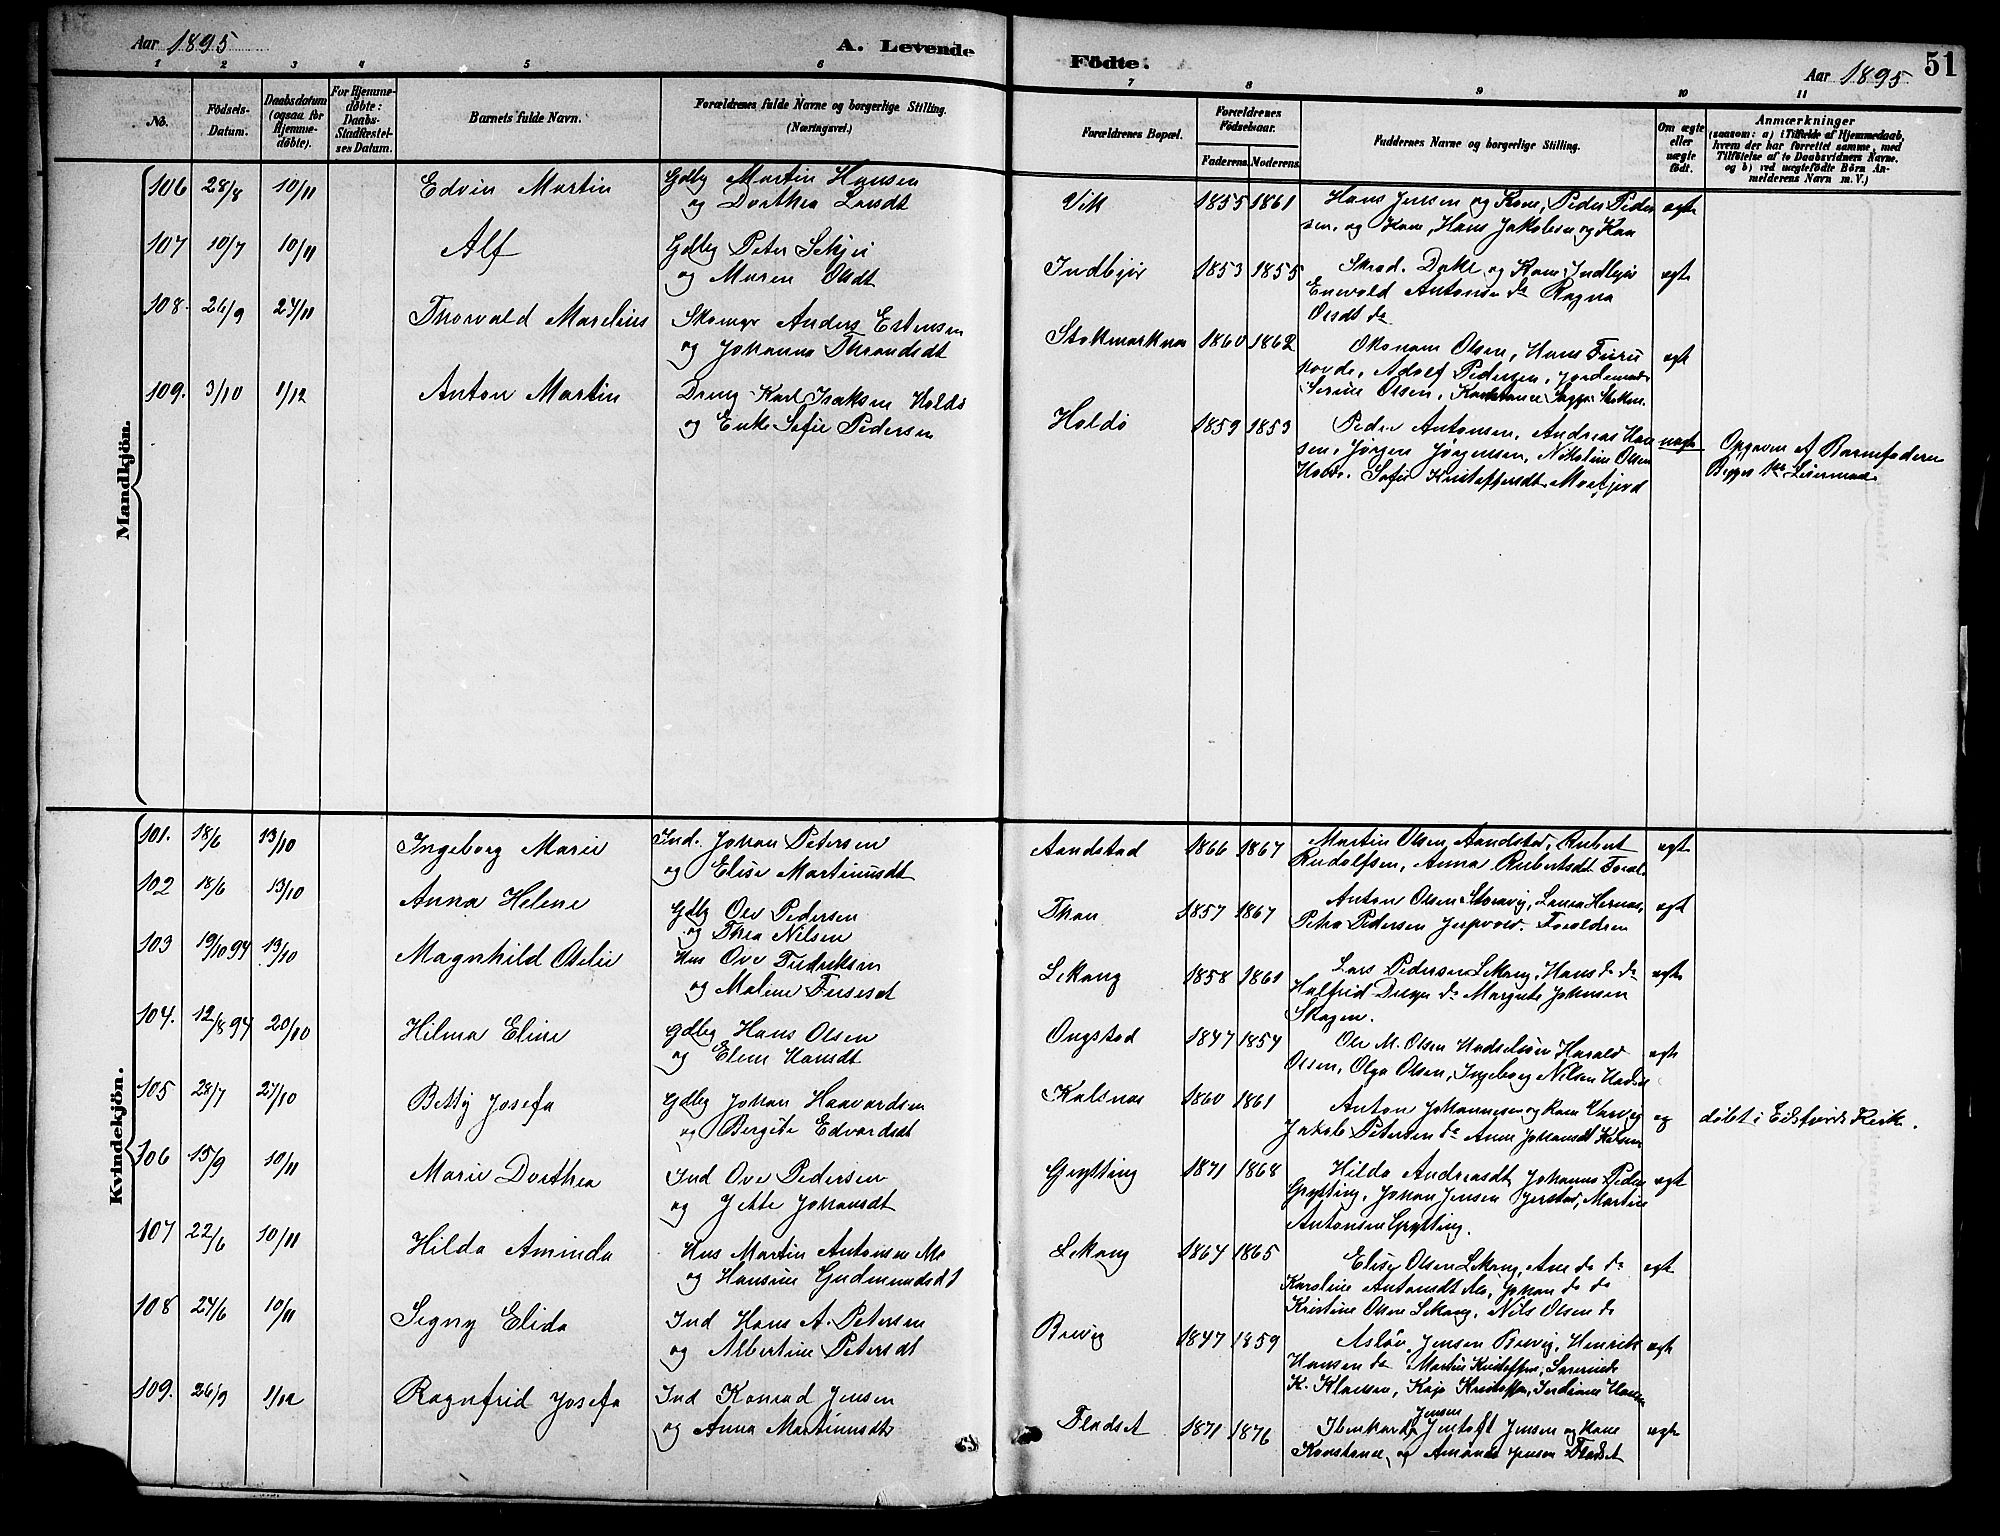 Aar 1895
A. Levende
Fødte.
Aar 1895
51
1 2 3 4 5 6 7 8 9 10 11
No.
Fødsels-
Datum.
Daabsdatum
(ogsaa for
Hjemme-
døbte).
For Hjemme-
døbte:
Daabs-
Stadfæstel-
ses Datum.
Barnets fulde Navn.
Forældrenes fulde Navne og borgerlige Stilling.
(Næringsvei.)
Forældrenes Bopæl.
Forældrenes
Fødselsaar.
Faderens. Moderens.
Faddernes Navne og borgerlige Stilling.
Om ægte
eller
uægte
født.
Anmærkninger
(saasom: a) i Tilfælde af Hjemmedaab,
hvem der har forrettet samme, med
Tilføielse af to Daabsvidners Navne.
og b) ved uægtefødte Børn An-
melderens Navn m. V.)
Mandkjøn.
106 28/8 10/11 Edvin Martin Gdbg Martin Hansen
og Dorthea Larsdt
Vik 1855 1861 Hans Jensen og Kone, Peder Peder
sen, og Kone, Hans Jakobsen og Kon
ægte
107 10/7 10/11 Alf Gdbg Peter
og Maren Olsdt
Indbjør 1853 1855 Skrad. Dake og Kone Indbjør
Enevold Antonsen do Ragna
Olsdt do
ægte
108. 26/9 24/11 Thorvald Marelius Skomgr Anders Estensen
og Johanna Throndsdt
Stokmarknes 1860 1862 Okonom Olsen, Hans
Adolf Pedersen, Jordemoder
Serine Olsen, Konstance
ægt
109. 3/10 1/12 Anton Martin Dreng Karl Isaksen Holdø
og Enke Sofie Pedersen
Holdø 1859 1853 Peder Antonsen, Andreas Han
sen, Jørgen Jørgensen, Nikoline Olsen
Holdø. Sofie Kristoffersdt Morfjord
uægte
Opgiven af Barnefaderen
Begges 1ste Leiermaal
Kvindekjøn.
101. 18/6 13/10 Ingeborg Marie Ind. Johan Petersen
og Elise Martinusdt
Aandstad 1866 1867 Martin Olsen Aandstad, Rubert
Rudolfsen, Anna Rubertsdt Foræl.
ægt
102 18/6 13/10 Anna Helene Gdbg Ole Pedersen
og Thea Nilsen
Than 1857 1867 Anton Olsen Storavig, Laura Hernes,
Petra Pedersen Jerpvold. Forældren
ægt
103 19/10 94 13/10 Magnhild Oselie Hus Ove Fredriksen
og Malene
Lekang 1858 1861 Lars Pedersen Lekang, Hans do do
Halfrid do Margrete Johnsen
Skagen.
ægte
104. 12/8 94 20/10 Hilma Eline Gdbg Hans Olsen
og Eline Hansdt
Ongstad 1847 1854 Ole M. Olsen Hadseløen Harald
Olsen, Olga Olsen, Ingeborg Nilsen
ægte
105 28/7 27/10 Betty Josefa Gdbg Johan Haavardsen
og Bergite Edvardsdt
Kalsnes 1860 1861 Anton Johannesen og Kone
Jakob Petersen do Anne Johansdt
æg
døbt i Eidsfjords Kirke.
106 15/9 10/11 Marie Dorthea Ind Ove Pedersen
og Jette Johansdt
Grytting 1871 1868 Hilda Andreasdt Johannes Peder
Grytting, Johan Jensen Jerstad, Martin
Antonsen Grytting.
ægt
107 22/6 10/11 Hilda Aminda Hus Martin Antonsen
og Hansine Gudmundsdt
Lekang 1864 1865 Olsen Lekang, Ane do do
Karoline Antonsdt do, Johan do do
Kristine Olsen Lekang, Nils Olsen do
ægt
108 24/6 10/11 Signy Elida Ind Hans A. Petersen
og Albertine Petersdt
Brevig 1847 1859 Asløv Jensen Brevig, Henrik
Hansen do Martin Kristoffer,
K. Klaesen, Kaja Kristoffer,
ægt
109. 26/9 1/12 Ragnfrid Josefa Ind Konrad Jensen
og Anna Martinusdt
Fladset 1871 1876 Jensen
Jensen og Kone
Konstance, og Amanda Jensen Fladset
ægte